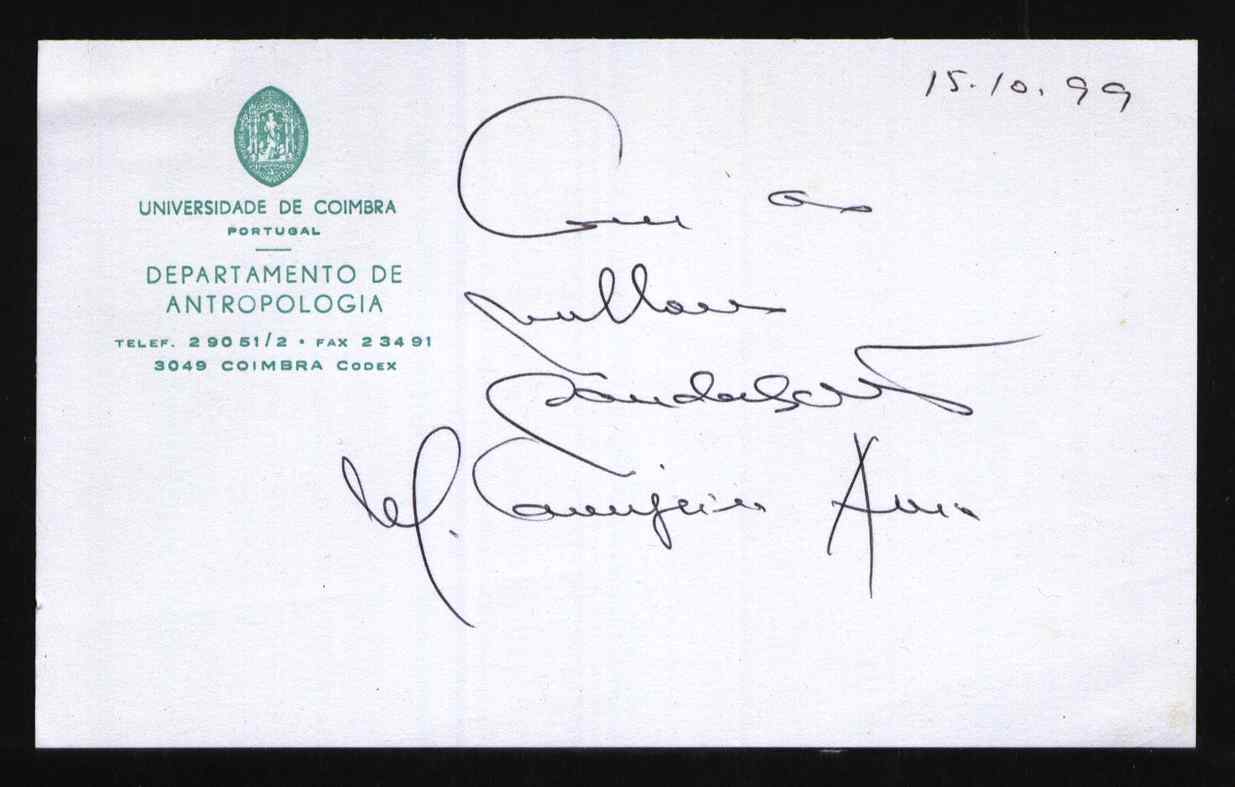 15.10.99
UNIVERSIDADE DE COIMBRA
PORTUGAL
DEPARTAMENTO DE
ANTROPOLOGIA
TELEF. 29051/2 • FAX 23491
3049 COIMBRA CODEX
Com as
melhores
saudações
M.